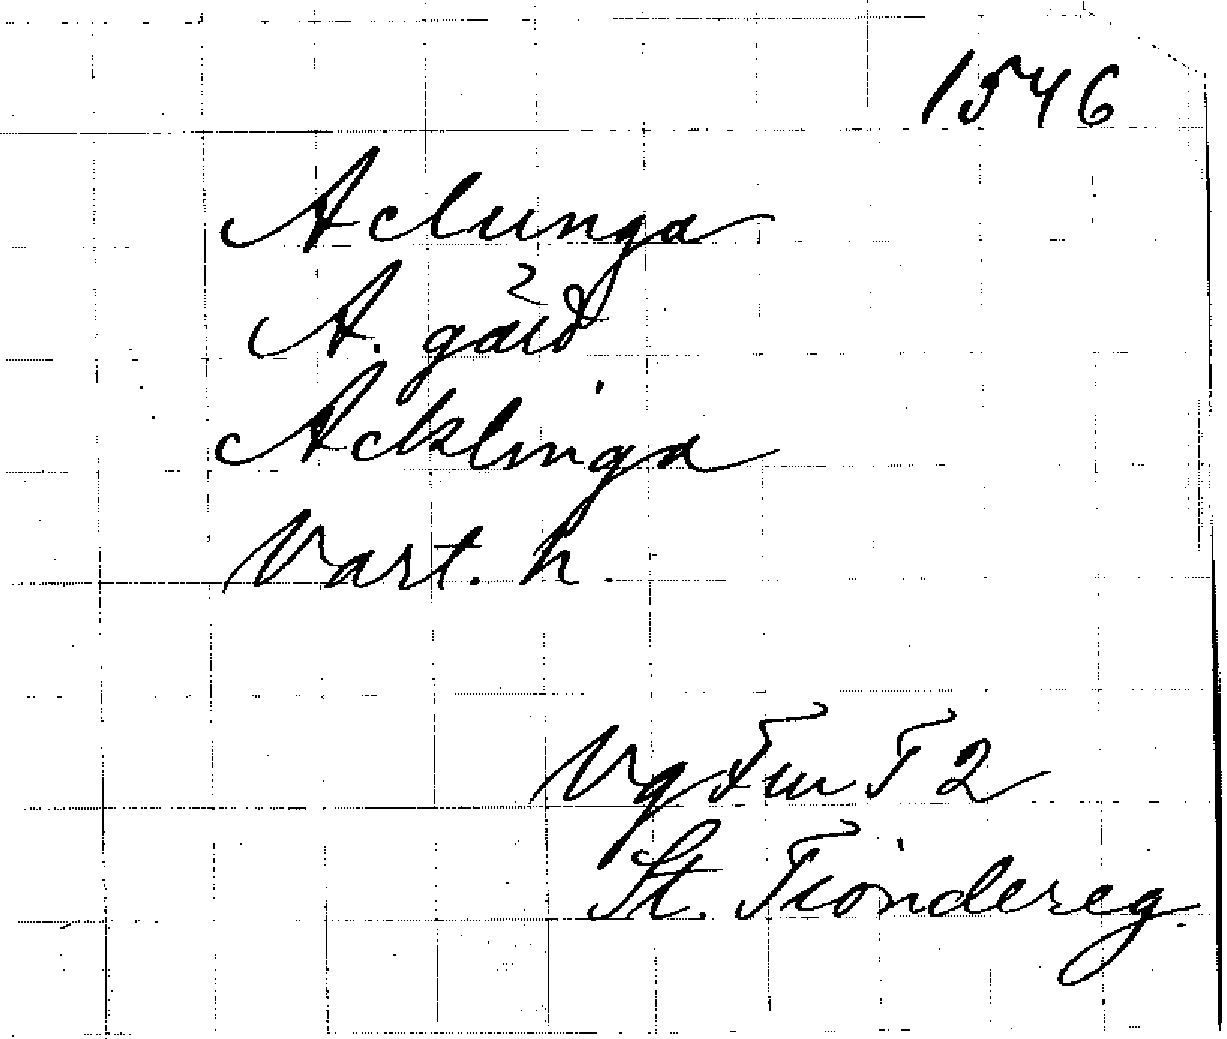 1546
Aclunga
A. gärd
Acklinga
Vart. h.
Vg Fm T 2
St. Tiondereg.